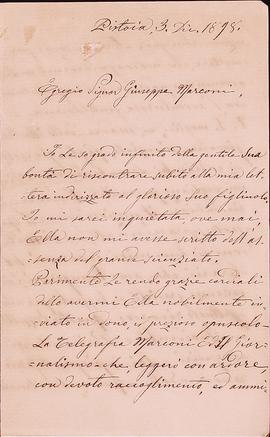 Pistoia, 3. Dic. 1898.
Egregio Signor Giuseppe Marconi,
Io Le so grado infinito della gentile Sua
bontà di riscontrare subito alla mia let-
tera indirizzata al glorioso Suo figliuolo.
Io mi sarei inquietata, ove mai,
Ella non mi avesse scritto dell'as-
senza del grande scienziato.
Parimenti Le rendo grazie cordiali
dello avermi Ella nobilmente in-
viato in dono, il prezioso opuscolo
La Telegrafia Marconi Ed il Gior-
nalismo - che, leggerò con ardore,
con devoto raccoglimento, ed ammi-